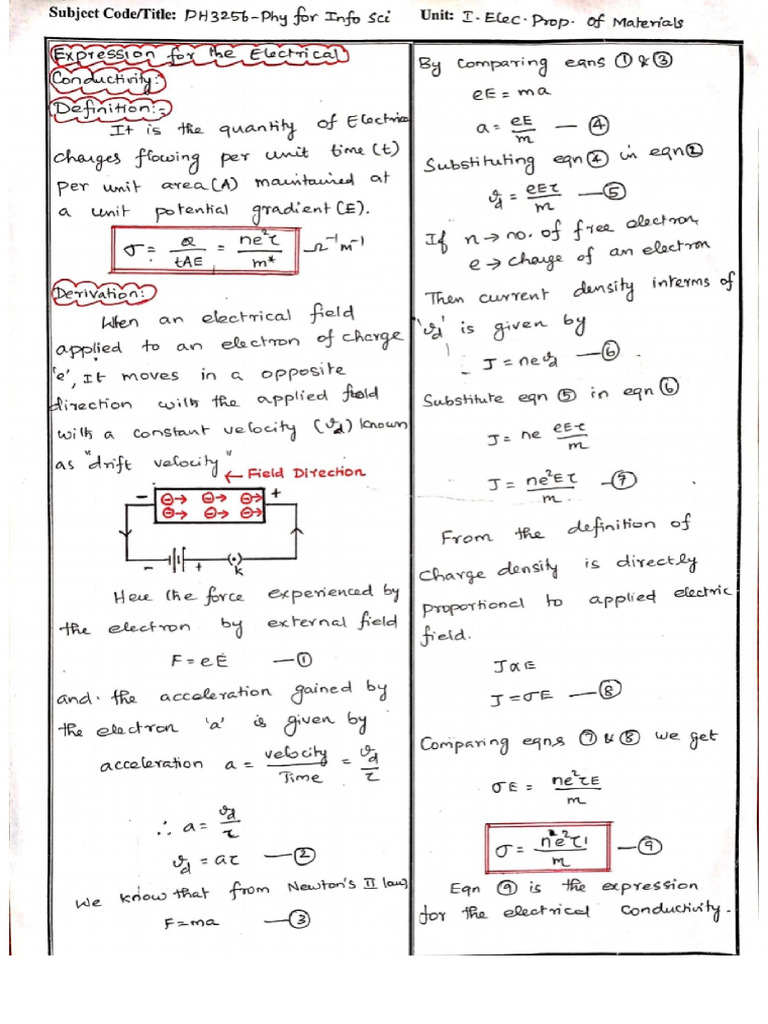 Subject Code/Title: PH3256-Phy for Info Sci Unit: I. Elec. Prop. of Materials
Expression for the Electrical
Conductivity:
Definition:-
It is the quantity of Electrical
charges flowing per unit time (t)
per unit area (A) maintained at
a unit potential gradient (E).
σ = Q/tAE = ne²τ/m* Ω⁻¹m⁻¹
Derivation:
When an electrical field
applied to an electron of charge
'e', It moves in a opposite
direction with the applied field
with a constant velocity (vd) known
as "drift velocity"
← Field Direction
- ⊖→ ⊖→ ⊖→ +
⊖→ ⊖→ ⊖→
- + K
Here the force experienced by
the electron by external field
F = eE —①
and. the acceleration gained by
the electron 'a' is given by
acceleration a = velocity/Time = vd/τ
∴ a = vd/τ
vd = aτ —②
We know that from Newton's II law
F = ma —③
By comparing eqns ① & ③
eE = ma
a = eE/m —④
Substituting eqn ④ in eqn ②
vd = eEτ/m —⑤
If n → no. of free electron,
e → charge of an electron
Then current density interms of
'vd' is given by
J = nevd —⑥
Substitute eqn ⑤ in eqn ⑥
J = ne eEτ/m
J = ne²Eτ/m —⑦
From the definition of
charge density is directly
proportional to applied electric
field.
J ∝ E
J = σE —⑧
Comparing eqns ⑦ & ⑧ we get
σE = ne²τE/m
σ = ne²τ/m —⑨
Eqn ⑨ is the expression
for the electrical conductivity.